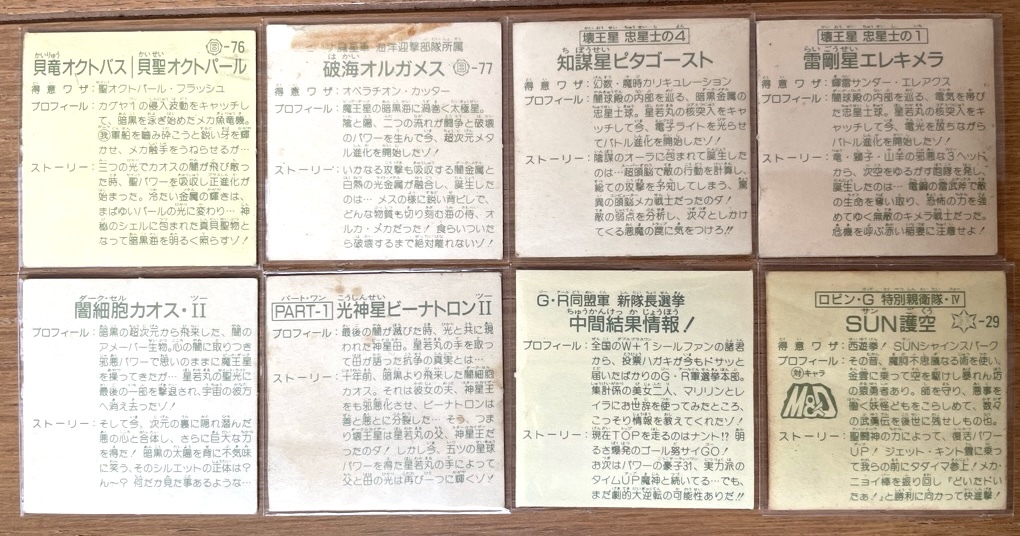 -76
貝竜オクトバス
貝聖オクトパール
得意ワザ:聖オクトパール・フラッシュ
プロフィール:カグヤ1の侵入波動をキャッチし
て、暗黒を泳ぎ始めたメカ魚竜機。
我軍船を噛み砕こうと鋭い牙を輝
かせ、メカ触手をうねらせるが…
ストーリー:三つの光でカオスの闇が飛び散っ
た時、聖パワーを吸収し正進化が
始まった。冷たい金属の輝きは、
まばゆいパールの光に変わり…神
秘のシェルに包まれた真貝聖物と
なって暗黒海を明るく照らすゾ!
海洋迎撃部隊所属
破海オルガメス
-77
得意ワザ:オペラチオン・カッター
プロフィール:魔王星の暗黒界に渦巻く太極星。
陰と陽、二つの流れが闘争と破壊
のパワーを生んで今、超次元メタ
ル進化を開始したゾ!
ストーリー:いかなる攻撃も吸収する闇金属と
白熱の光金属が融合し、誕生した
のは…メスの様に鋭い背ビレで、
どんな物質も切り刻む海の侍、オ
ルカ・メカだった!食らいついた
ら破壊するまで絶対離れないゾ!
壊王星 忠星士の4
知謀星ピタゴースト
得意ワザ:幻数・魔時カリキュレーション
プロフィール:闇球殿の内部を巡る、暗黒金属の
忠星士球。星若丸の核突入をキャ
ッチして今、電子ライトを光らせ
てバトル進化を開始したゾ!
ストーリー:陰謀のオーラに包まれて誕生した
のは…超頭脳で敵の行動を計算し、
総ての攻撃を予知してしまう、驚
異の頭脳メカ戦士だったのダ!
敵の弱点を分析し、次々としかけ
てくる悪魔の罠に気をつけろ!!
壊王星 忠星士の1
雷剛星エレキメラ
得意ワザ:輝雷サンダー・エレアウス
プロフィール:闇球殿の内部を巡る、電気を帯び
た忠星士球。星若丸の核突入をキ
ャッチして今、電光を放ちながら
バトル進化を開始したゾ!
ストーリー:竜・獅子・山羊の邪悪な3ヘッド
から、次空をゆるがす咆哮を発し、
誕生したのは…竜鋼の雷武斧で敵
の生命を奪い取り、恐怖の力を強
めてゆく無敵のキメラ戦士だった。
危機を呼ぶ赤い稲妻に注意せよ!
闇細胞カオス・II
プロフィール:暗黒の超次元から飛来した、闇の
アメーバー生物。心の闇に取りつき
邪悪パワーで思いのままに魔王星
を操ってきたが…星若丸の聖光に
最後の一部を撃退され、宇宙の彼方
へ消え去ったゾ!
ストーリー:そして今、次元の裏に隠れ潜んだ
悪の心と合体し、さらに巨大な力
を得た!暗黒の太陽を背に不気味
に笑う、そのシルエットの正体は?
ん〜?何だか見た事あるような…
PART-1
光神星ビーナトロンII
プロフィール:最後の闇が滅びた時、光と共に現
われた神星母。星若丸の手を取っ
て母が語った抗争の真実とは…
ストーリー:十年前、暗黒より飛来した闇細胞
カオス。それは彼女の夫、神星王
をも邪悪化させ、ビーナトロンは
善と悪とに分裂した…そう、つま
り壊王星は星若丸の父、神星王だ
ったのダ!しかし今、五ツの星球
パワーを得た星若丸の手によって
父と母の光は再び一つに輝くゾ!
G・R同盟軍 新隊長選挙
中間結果情報!
プロフィール:全国のW+1シールファンの諸君
から、投票ハガキが今もドサッと
届いたばかりのG・R軍選挙本部。
集計係の美女二人、マリリンとレ
イラにお世辞を使ってみたところ、
こっそり情報を教えてくれたゾ!
ストーリー:現在TOPを走るのはナント!?明
るさ爆発のゴール騎サイGO!
お次はパワーの豪子31、実力派の
タイムUP魔神と続いてる…でも、
まだ劇的大逆転の可能性ありだ!!
ロビン・G 特別親衛隊・IV
SUN護空
-29
得意ワザ:西遊拳!SUNシャインスパーク
プロフィール:その昔、魔界不思議な術を使い、
対キャラ
金雲に乗って空を駆けし暴れん坊
の猿勇者あり。師を守り、悪事を
働く妖怪どもをこらしめて、数々
の武勇伝を後世に残せしもの也。
ストーリー:聖闘神の力によって、復活パワー
UP!ジェット・キント雲に乗っ
て我らの前にタダイマ参上!メカ・
ニョイ棒を振り回し「どいたドい
たぁ!」と勝利に向かって快進撃!